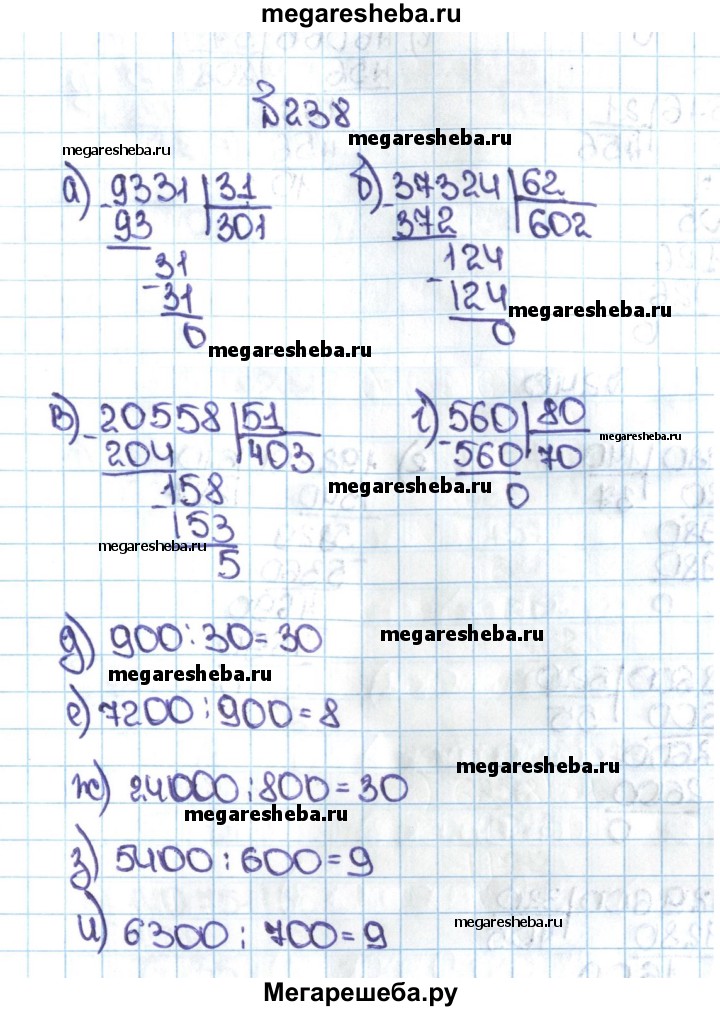 megaresheba.ru
№238
megaresheba.ru megaresheba.ru
а) 9331 | 31 б) 37324 | 62
- 93 301 - 372 602
31 124
- 31 - 124
0 0
megaresheba.ru megaresheba.ru
в) 20558 | 51 г) 560 | 80
- 204 403 - 560 70
158 0
- 153
5
megaresheba.ru
megaresheba.ru
megaresheba.ru
д) 900:30=30 megaresheba.ru
megaresheba.ru
е) 7200:900=8
megaresheba.ru
ж) 24000:800=30
megaresheba.ru
з) 5400:600=9
и) 6300:700=9 megaresheba.ru
Мегарешеба.ру